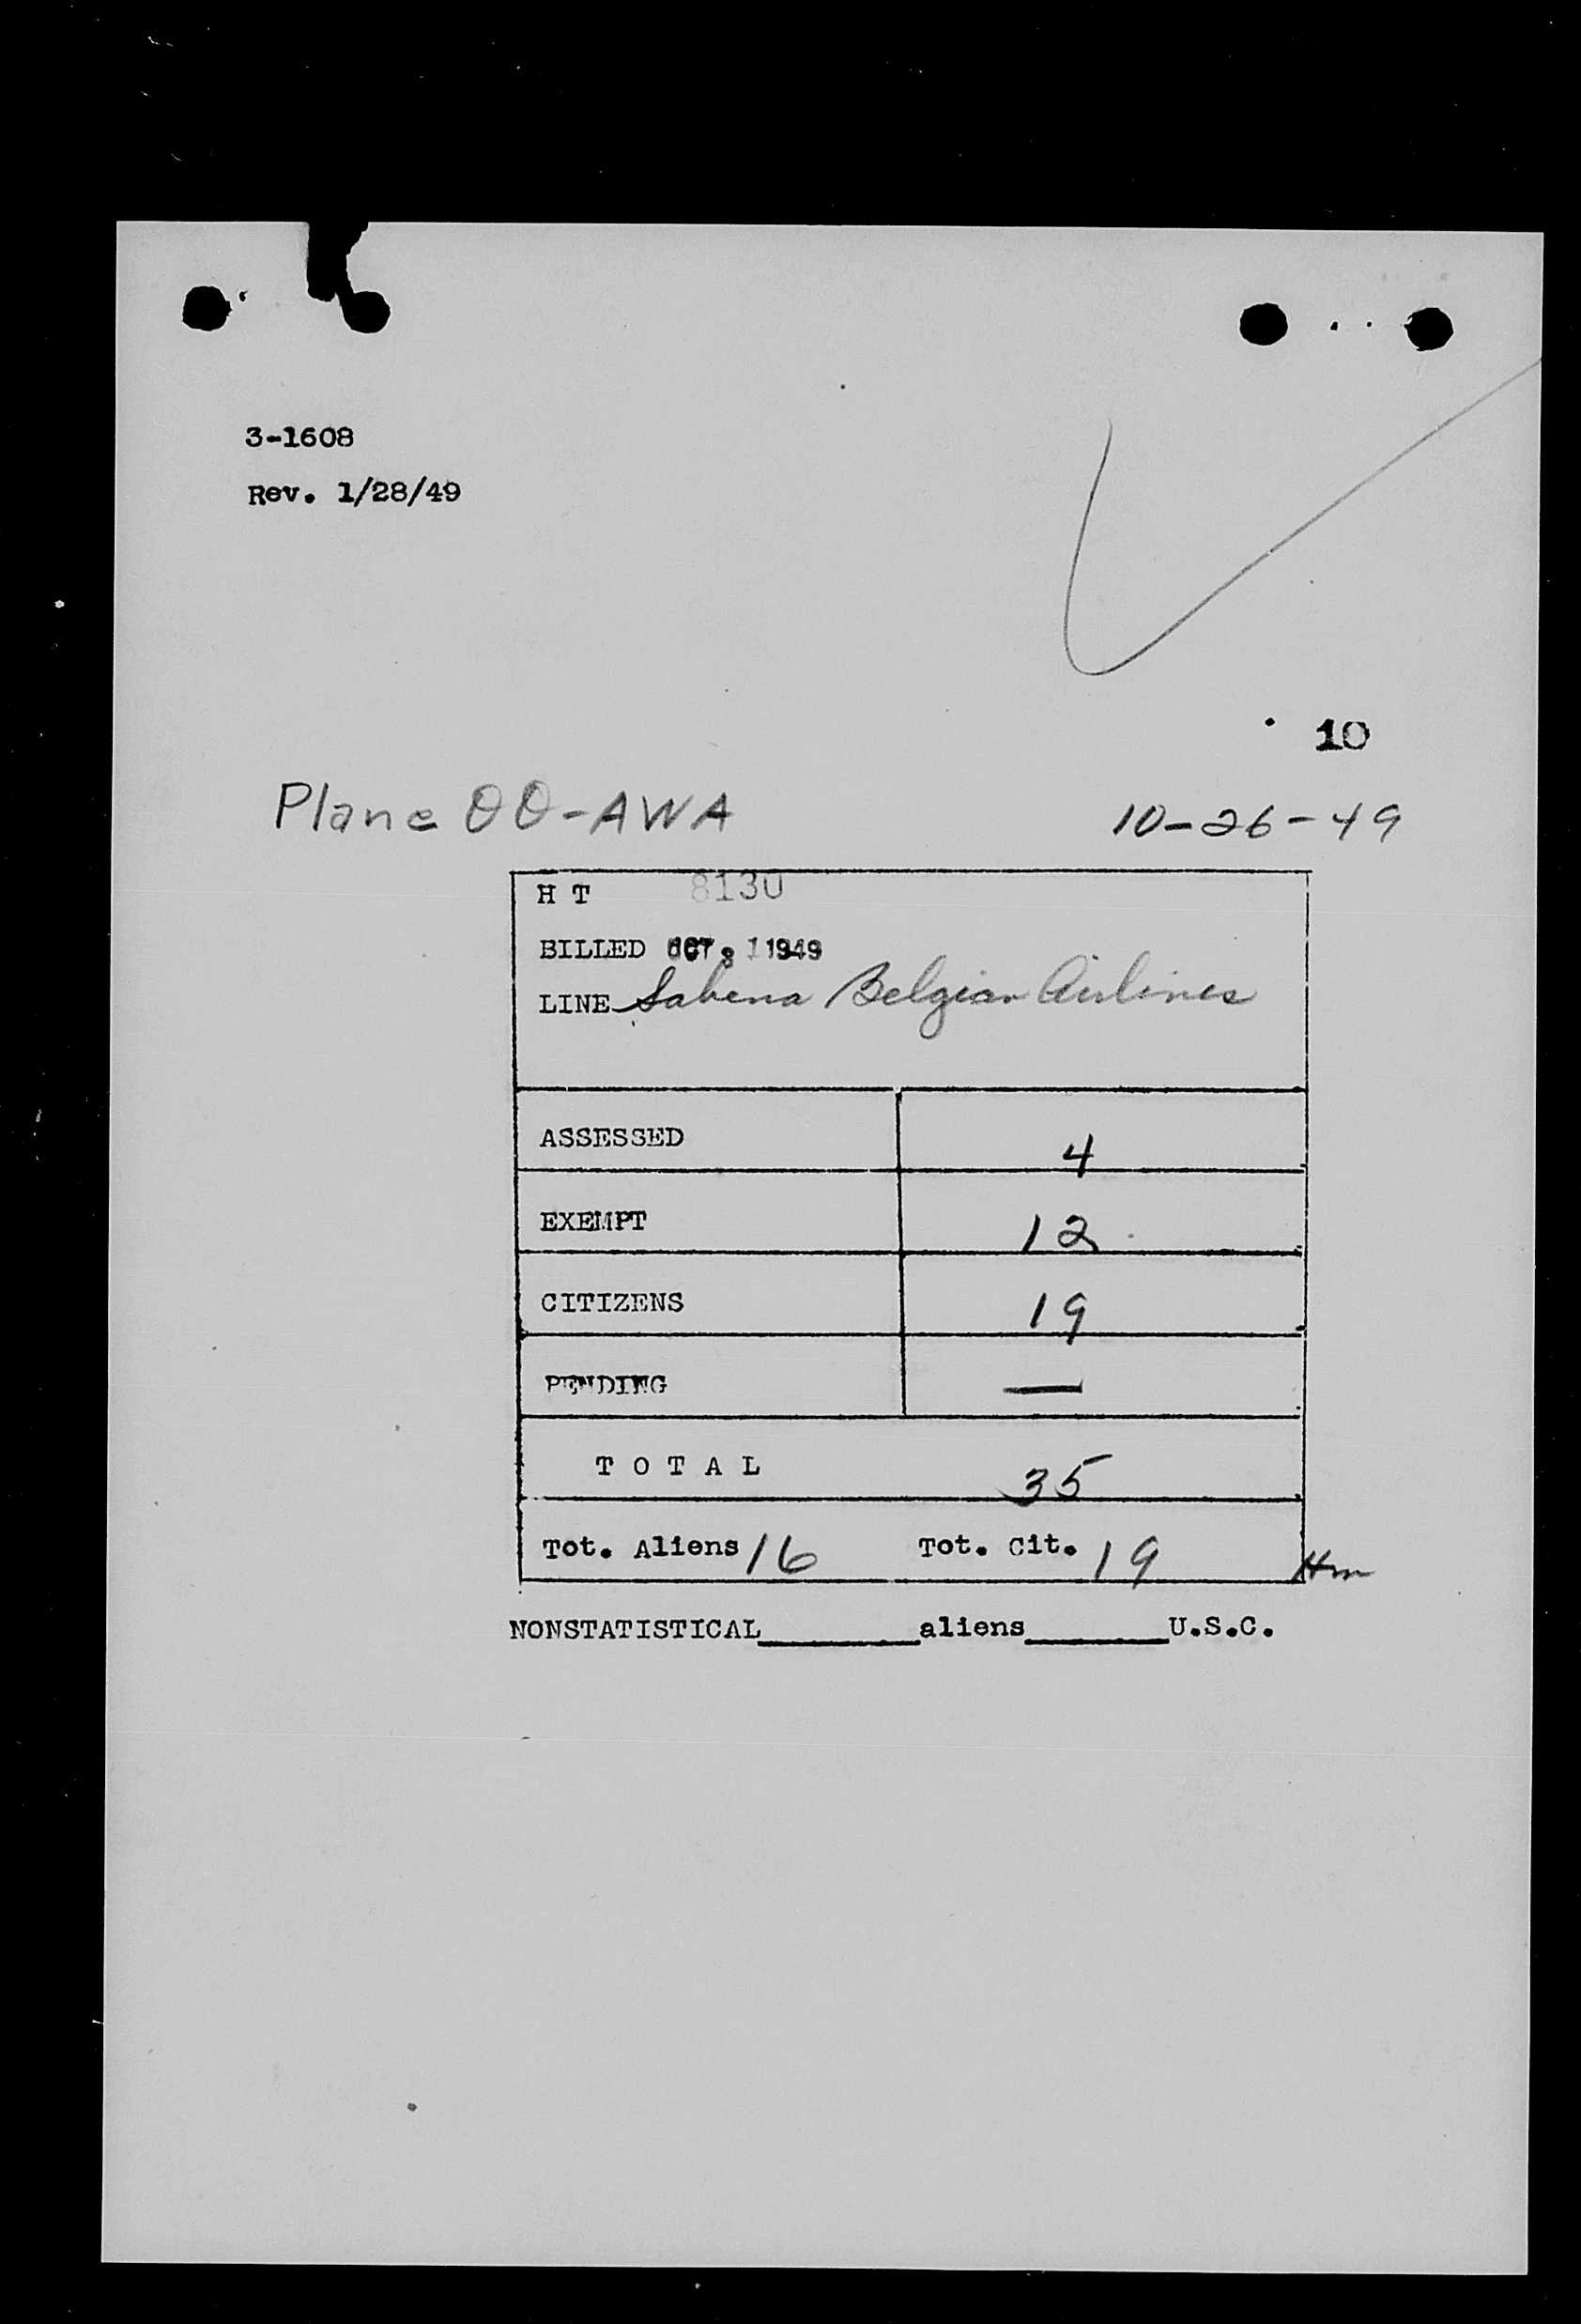 3-1608
Rev. 1/28/49
10
Plane OO-AWA
10-26-49
H T 8130
BILLED OCT 31 1949
LINE Sabena Belgian Airlines
ASSESSED 4
EXEMPT 12
CITIZENS 19
PENDING —
T O T A L 35
Tot. Aliens 16 Tot. Cit. 19
NONSTATISTICAL________aliens_______U.S.C.